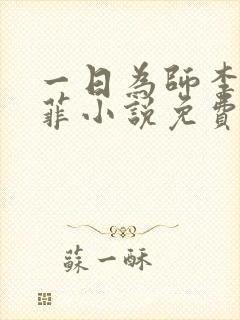 一日為師李
菲小說免費
蘇一酥